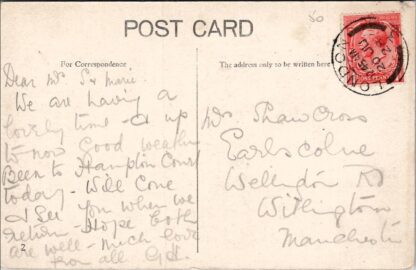 50
POST CARD
For Correspondence
The address only to be written here
LONDON
ONE PENNY
Dear Mrs S & Marie
We are having a
lovely time & up
to now Good weather
Been to Hampton Court
today - Will Come
& See you when we
return - Hope both
are well - much love
from all
2
Mrs Shawcross
Earlscolne
Wellington Rd
Withington
Manchester